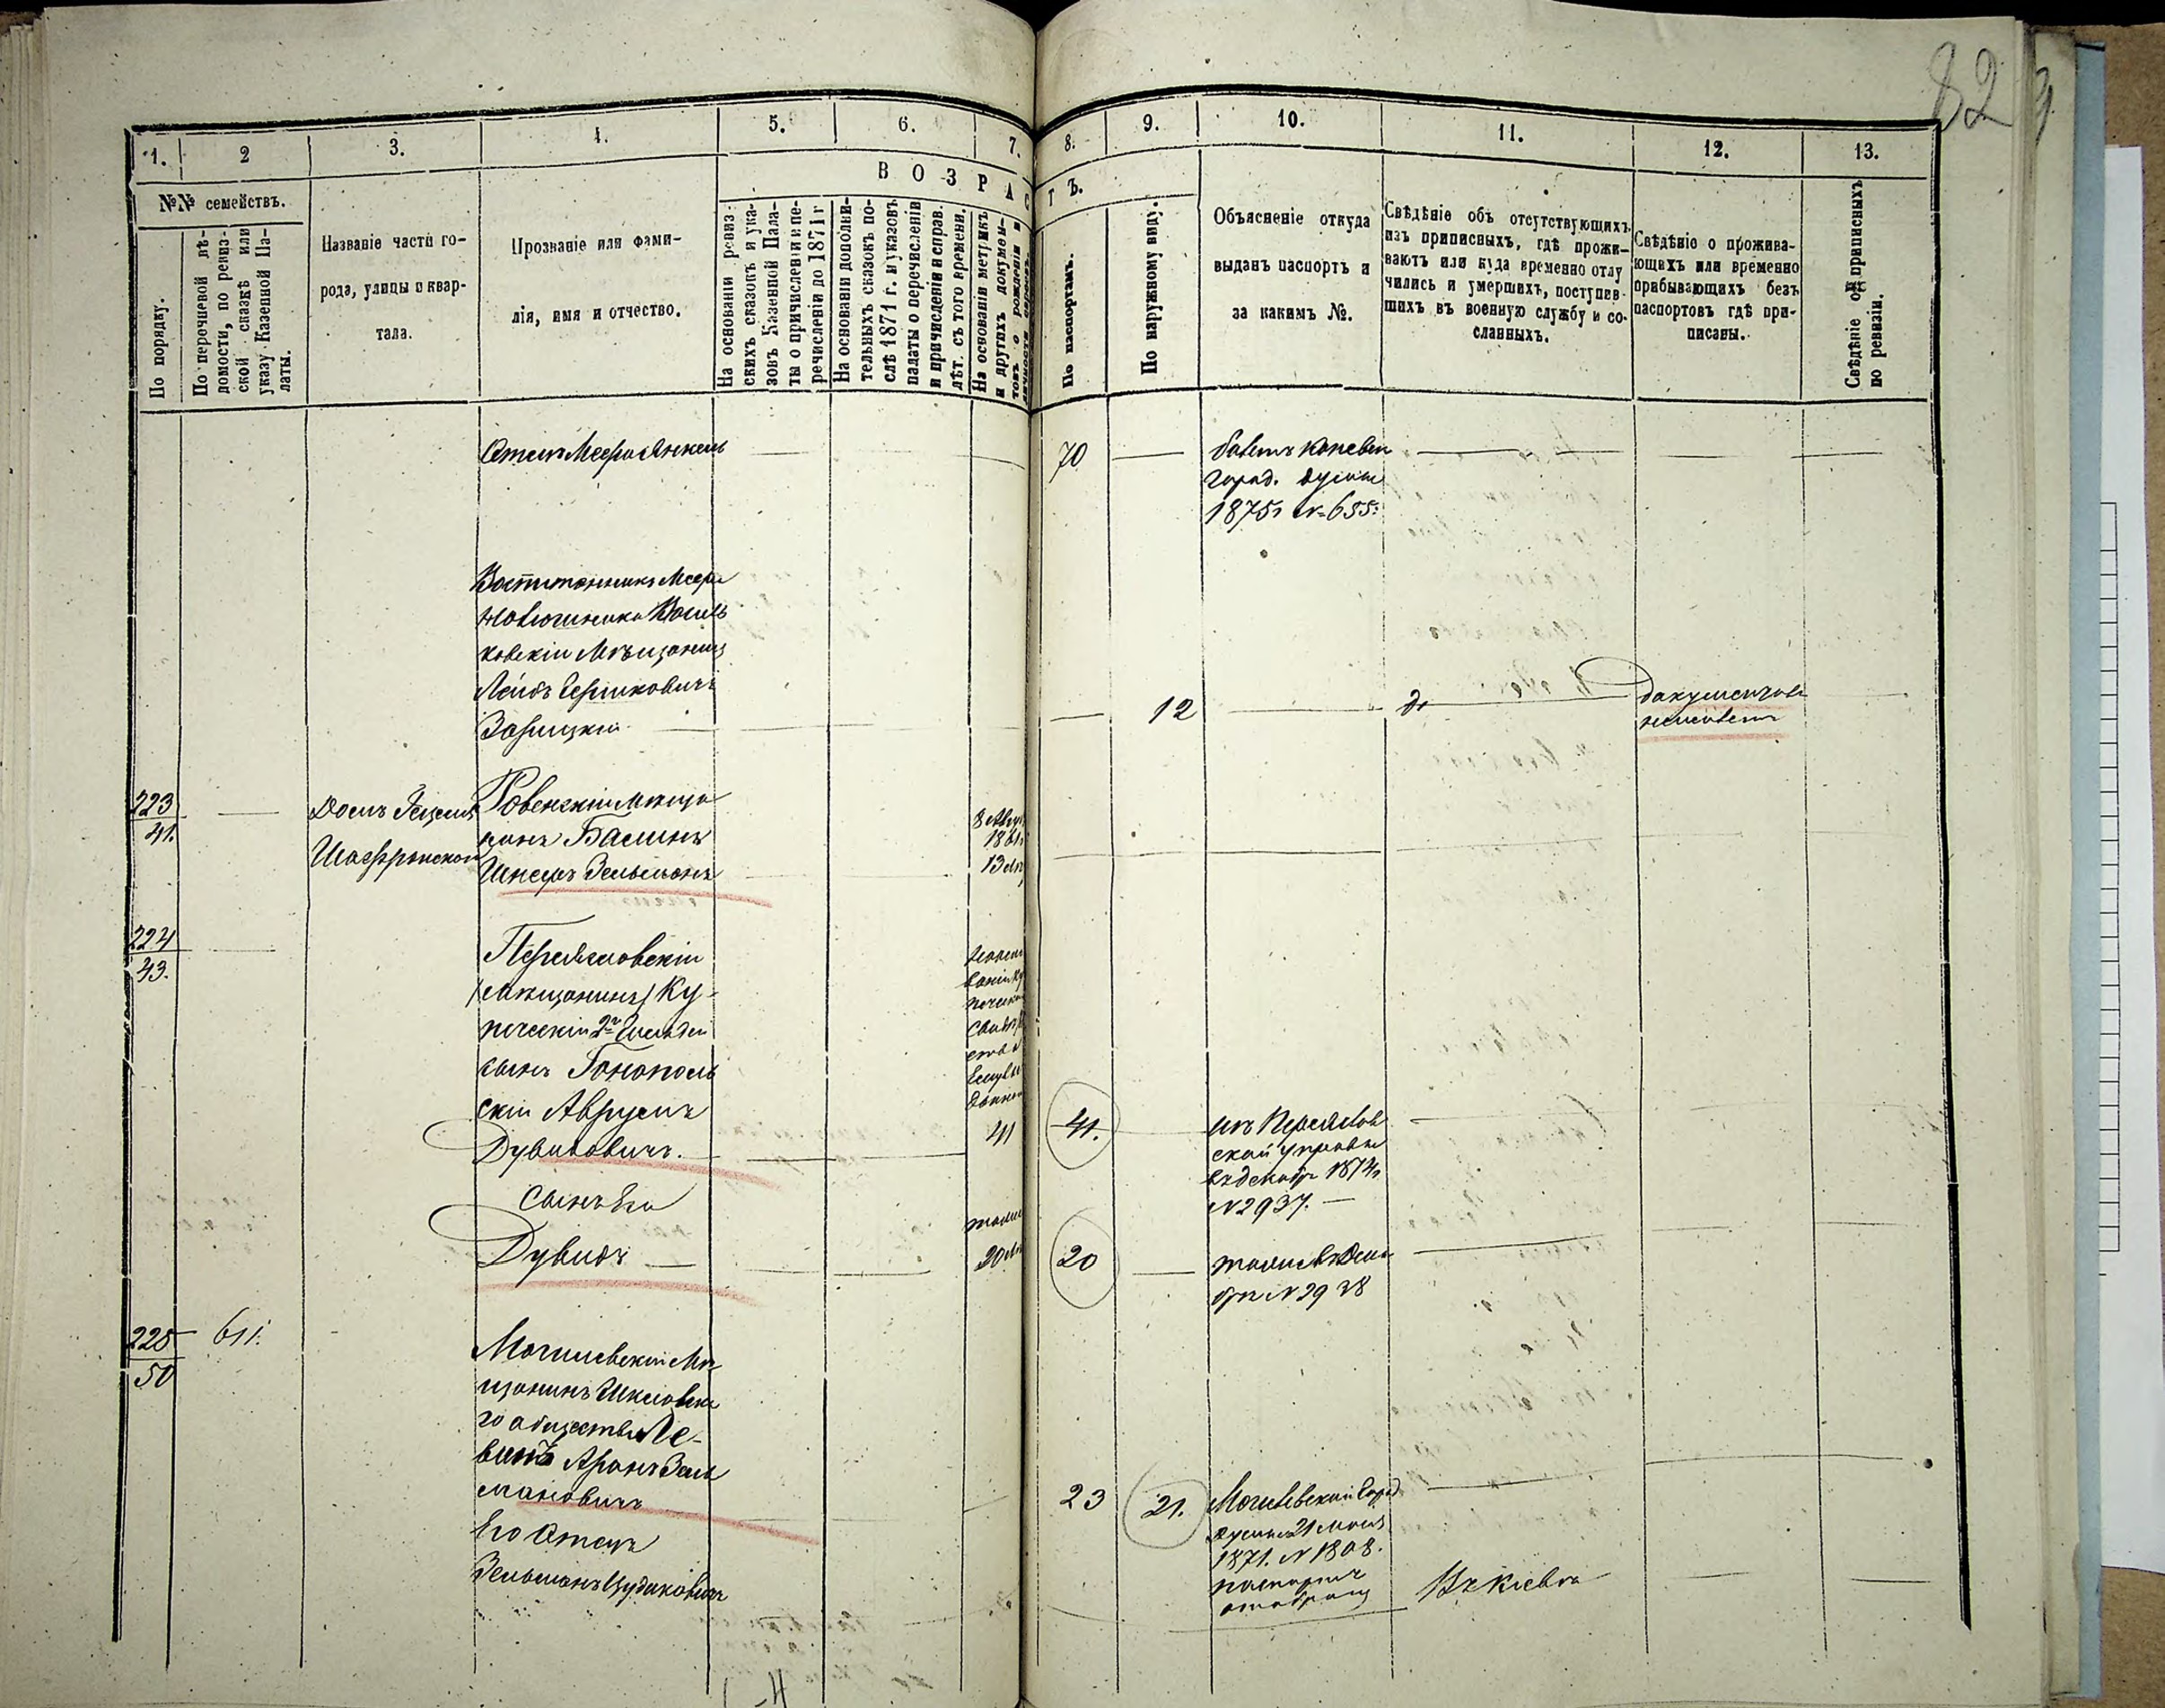 82
1.
2
3.
4.
5.
6.
7.
8.
9.
10.
11.
12.
13.
№№ семействъ.
По порядку.
По перечневой вѣ-
домости, по ревиз-
ской сказкѣ или
указу Казенной Па-
латы.
Названіе части го-
рода, улицы и квар-
тала.
Прозваніе или фами-
лія, имя и отчество.
ВОЗРАС
ТЪ.
На основаніи ревиз-
скихъ сказокъ и ука-
зовъ Казенной Пала-
ты о причисленіи и пе-
речисленіи до 1871 г
На основаніи дополни-
тельныхъ сказокъ по-
слѣ 1871 г. и указовъ
палаты о перечисленіи
и причисленіи и справ.
лѣт. съ того времени.
На основаніи метрикъ
и другихъ докумен-
товъ о рожденіи и
По паспортамъ.
По наружному виду.
Объясненіе откуда
выданъ паспортъ и
за какимъ №.
Свѣдѣніе объ отсутствующихъ
изъ приписныхъ, гдѣ прожи-
ваютъ или куда временно отлу
чились и умершихъ, поступив-
шихъ въ военную службу и со-
сланныхъ.
Свѣдѣніе о прожива-
ющихъ или временно
прибывающихъ безъ
паспортовъ гдѣ при-
писаны.
Свѣдѣніе о приписныхъ
по ревизіи.
Отецъ Меера Янкель
70
билетъ Каневск
город. думы
1875г №655:
Воспитанникъ Меера
Василь
ковскій Мѣщанинъ
Лейбъ Гершковичъ
Зарицкій
12
документовъ
неимѣетъ
223
41.
Домъ
Ровенскій мѣща
нинъ Баминъ
Шнеръ Зельманъ
8 Авгус
1861г
13 лѣт
224
43.
Переяславскій
(мѣщанинъ) Ку-
печескій 2й Гильдіи
сынъ Гонополь
скій Аврумъ
Дувидовичъ.
41
41.
изъ Переяслов
ской управы
въ декабр 1874г
№2937.
сынъ Его
Дувидъ
тамъ
20 лѣ
20
тамъ въ Дека
бре №2938
225
50
611.
Могилевскій Мѣ
щанинъ Шкловска
го общества Ле-
винъ Аронъ Зель
мановичъ
23
21.
Могилевской Город
думы 21 июля
1871. №1808.
паспортъ
отобранъ
Его Отецъ
Зельманъ Цудиковичъ
Въ Кіевѣ